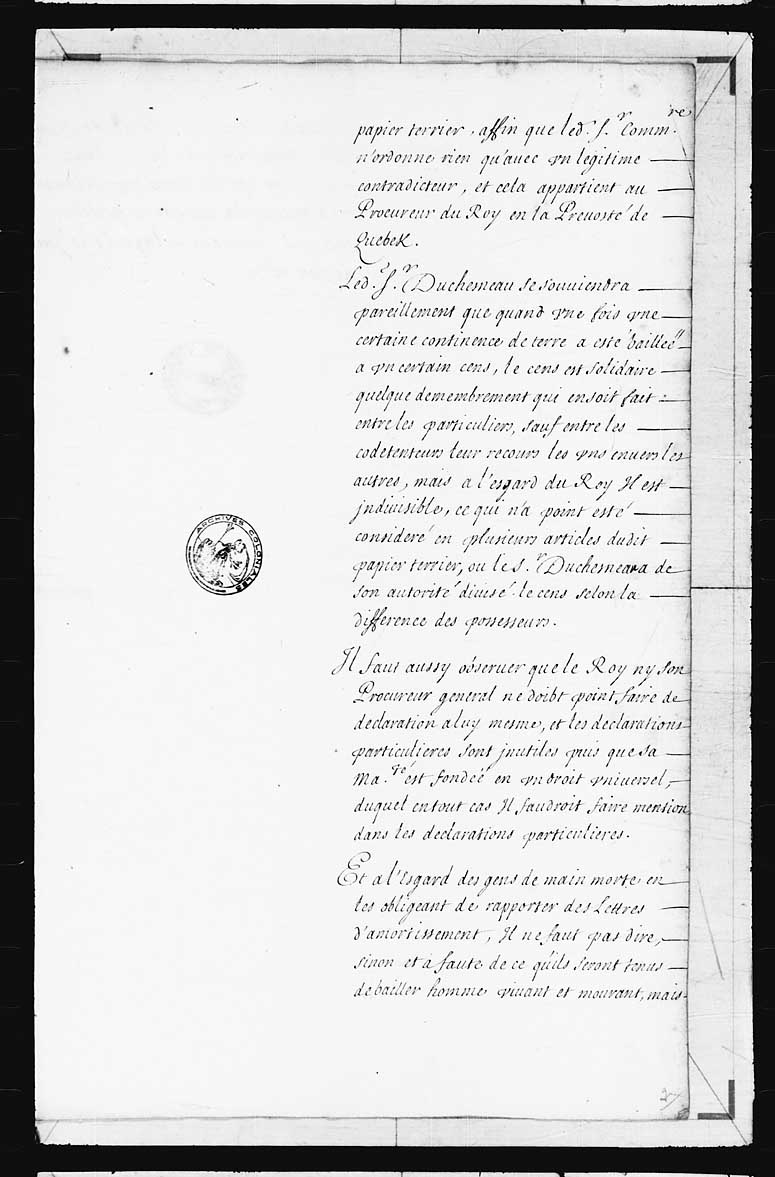 papier terrier, affin que led. S.r Comm.re
n'ordonne rien qu'auec vn legitime
contradicteur, et cela appartient au
Procureur du Roy en la Preuosté de
Quebek.
Led. S.r Duchesneau se souuiendra
pareillement que quand vne fois vne
certaine continence de terre a esté bailleé
a vn certain cens, le cens est solidaire
quelque demembrement qui en soit fait
entre les particuliers, sauf entre les
codetenteurs leur recours les vns enuers les
autres, mais a l'esgard du Roy Il est
jndiuisible, ce qui n'a point esté
consideré en plusieurs articles dudit
papier terrier, ou le S.r Duchesneau a de
son autorité diuisé le cens selon la
difference des possesseurs.
Il faut aussy obseruer que le Roy ny son
Procureur general ne doibt point faire de
declaration a luy mesme, et les declarations
particulieres sont jnutiles puis que sa
Ma.té est fondeé en vn droit vniuersel,
duquel en tout cas Il faudroit faire mention
dans les declarations particulieres.
Et a l'Esgard des gens de main morte en
les obligeant de rapporter des Lettres
d'amortissement, Il ne faut pas dire,
sinon et à faute de ce qu'ils seront tenus
de bailler homme viuant et mourant, mais
ARCHIVES COLONIALES
27